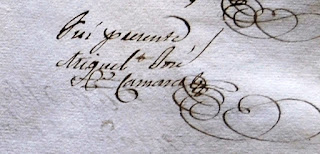 Fui presente
Miguel José
Camara